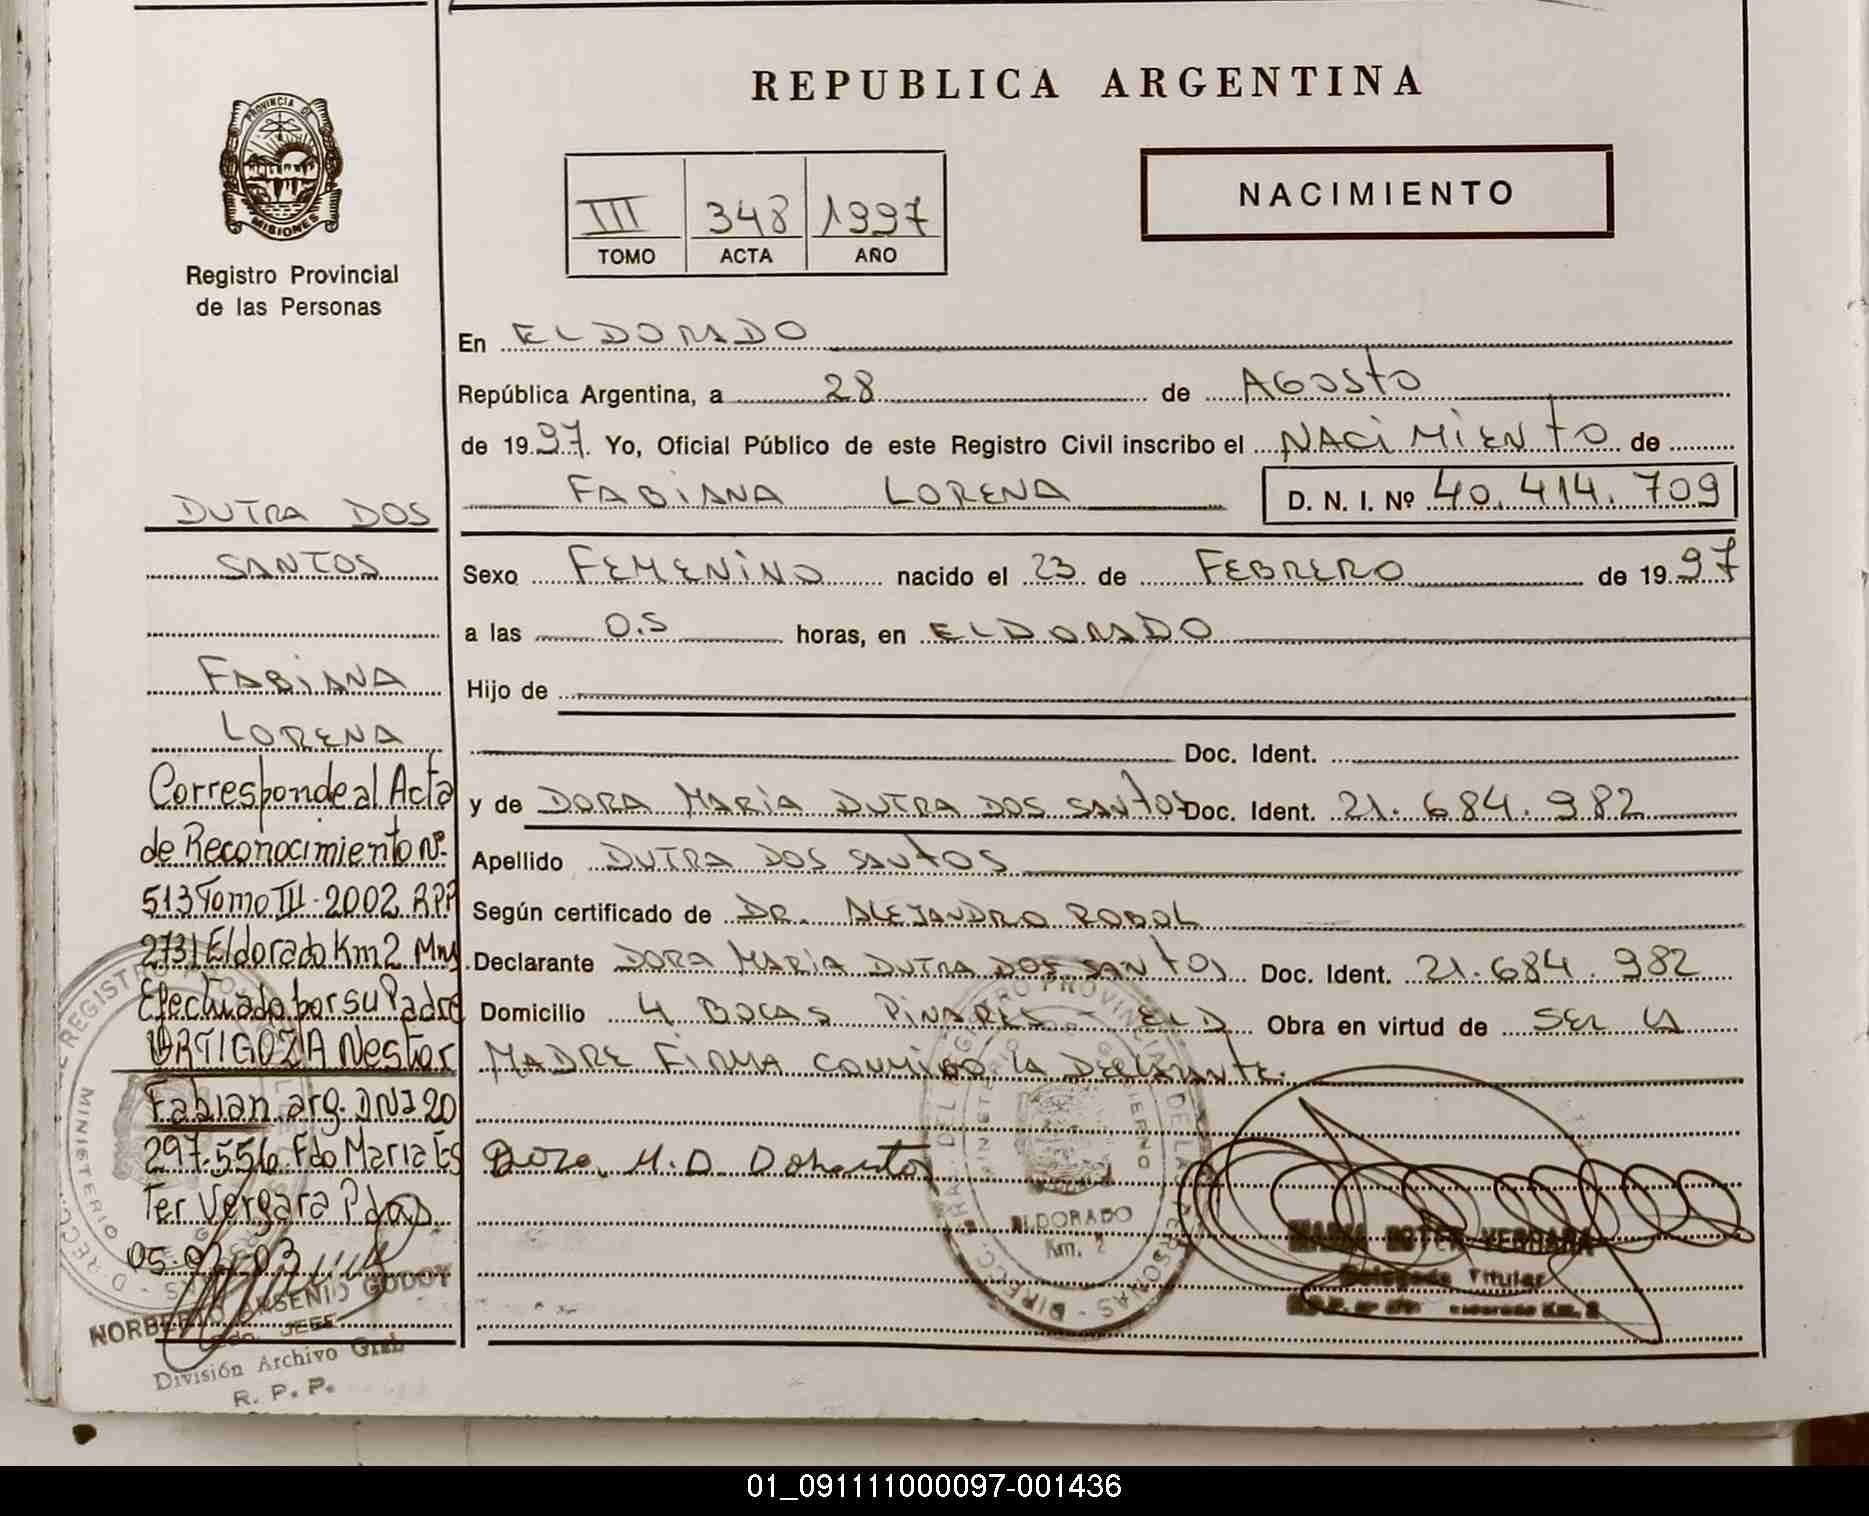 REPUBLICA ARGENTINA
PROVINCIA DE
MISIONES
Registro Provincial
de las Personas
III 348 1997
TOMO ACTA AÑO
NACIMIENTO
En ELDORADO
República Argentina, a 28 de AGOSTO
de 1997. Yo, Oficial Público de este Registro Civil inscribo el NACIMIENTO de
FABIANA LORENA D. N. I. Nº 40.414.709
Sexo FEMENINO nacido el 23 de FEBRERO de 1997
a las 0.5 horas, en ELDORADO
Hijo de
Doc. Ident.
y de DORA MARIA DUTRA DOS SANTOS Doc. Ident. 21.684.982
Apellido DUTRA DOS SANTOS
Según certificado de DR. ALEJANDRO RODOL
Declarante DORA MARIA DUTRA DOS SANTOS Doc. Ident. 21.684.982
Domicilio 4 BOCAS PINARES - ELD Obra en virtud de SER LA
MADRE FIRMA CONMIGO LA DECLARANTE.
ELDORADO
Km. 2
MARIA ESTER VERGARA
Delegada Titular
DUTRA DOS
SANTOS
FABIANA
LORENA
Corresponde al Acta
de Reconocimiento Nº
513 Tomo III - 2002 RPP
2731 Eldorado Km2 Mnes
Efectuado por su Padre
ORTIGOZA Nestor
Fabian arg. DNI 20
297.556 Fdo Maria Es
Ter Vergara
05.02.03
NORBERTO ARSENIO GODOY
JEFE
División Archivo Gral
R. P. P.
01_091111000097-001436